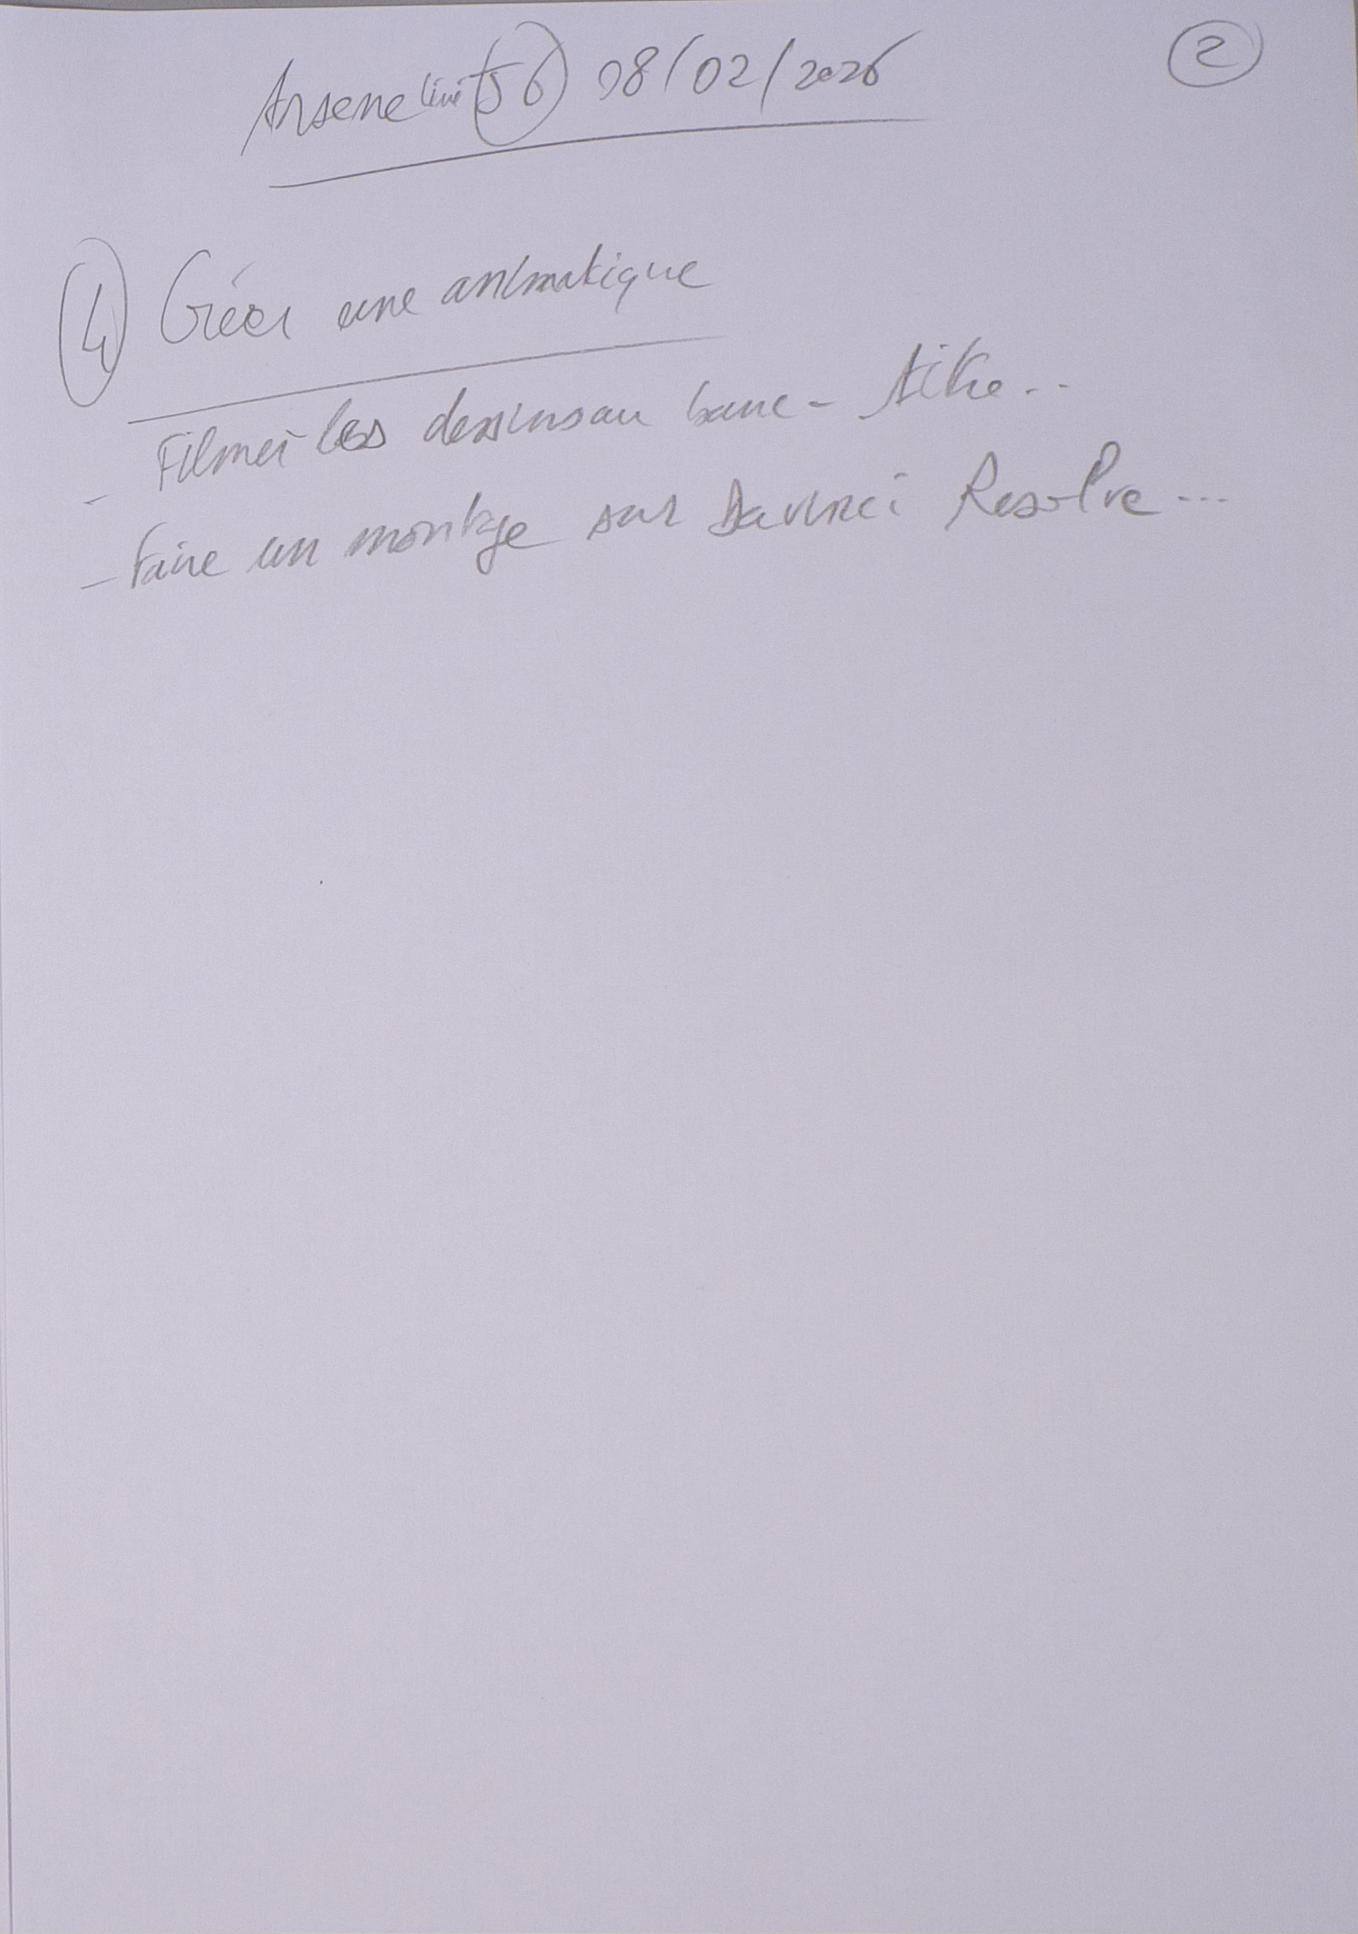 Arsene live 56 08/02/2026
2
4 Créer une animatique
- Filmer les dessins au banc-titre..
- Faire un montage sur Davinci Resolve...